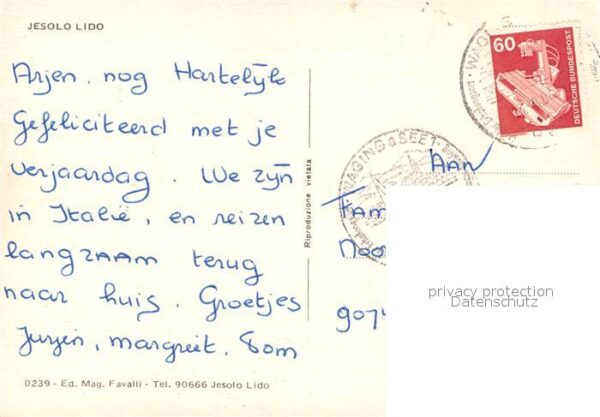 JESOLO LIDO
Arjen. nog Hartelijk
Gefeliciteerd met je
verjaardag. We zijn
in Italië, en reizen
langzaam terug
naar huis. Groetjes
Jurjen, margreet, Tom
0239 - Ed. Mag. Favalli - Tel. 90666 Jesolo Lido
Riproduzione vietata
60
DEUTSCHE BUNDESPOST
WAGING a SEE 1
Aan
Fam
Noo
9074
privacy protection
Datenschutz